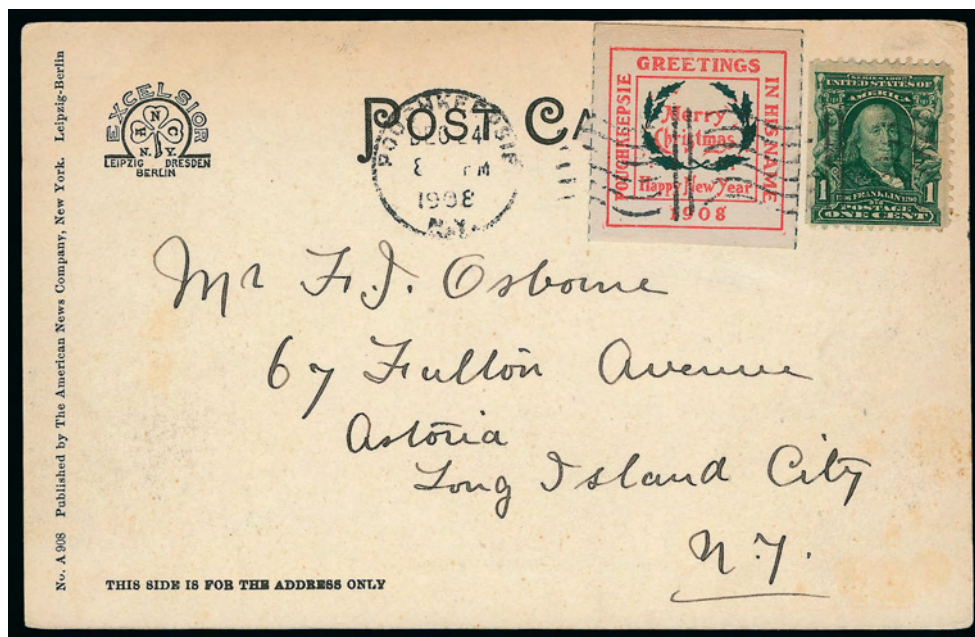 No. A 908 Published by The American News Company, New York. Leipzig-Berlin
EXCELSIOR
N
A C
N.Y.
LEIPZIG DRESDEN
BERLIN
POST CA
POUGHKEEPSIE
DEC 24
8 PM
1908
N.Y.
GREETINGS
POUGHKEEPSIE
IN HIS NAME
Merry
Christmas
Happy New Year
1908
SERIES 1902
UNITED STATES OF
AMERICA
1 FRANKLIN 1
POSTAGE
ONE CENT
Mr F. J. Osborne
67 Fulton Avenue
Astoria
Long Island City
N.Y.
THIS SIDE IS FOR THE ADDRESS ONLY